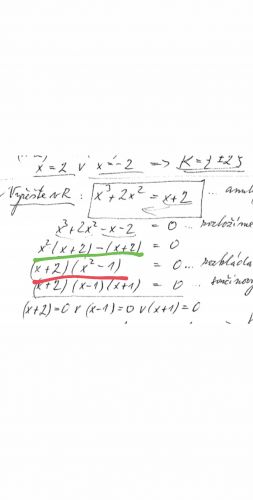 x = 2 ∨ x = -2 => K = {±2}
Vyřešte v R : x³ + 2x² = x + 2 ...
x³ + 2x² - x - 2 = 0 ... rozložíme
x² (x+2) - (x+2) = 0
(x+2) (x² - 1) = 0 ...
(x+2) (x-1) (x+1) = 0 ...
(x+2) = 0 ∨ (x-1) = 0 ∨ (x+1) = 0